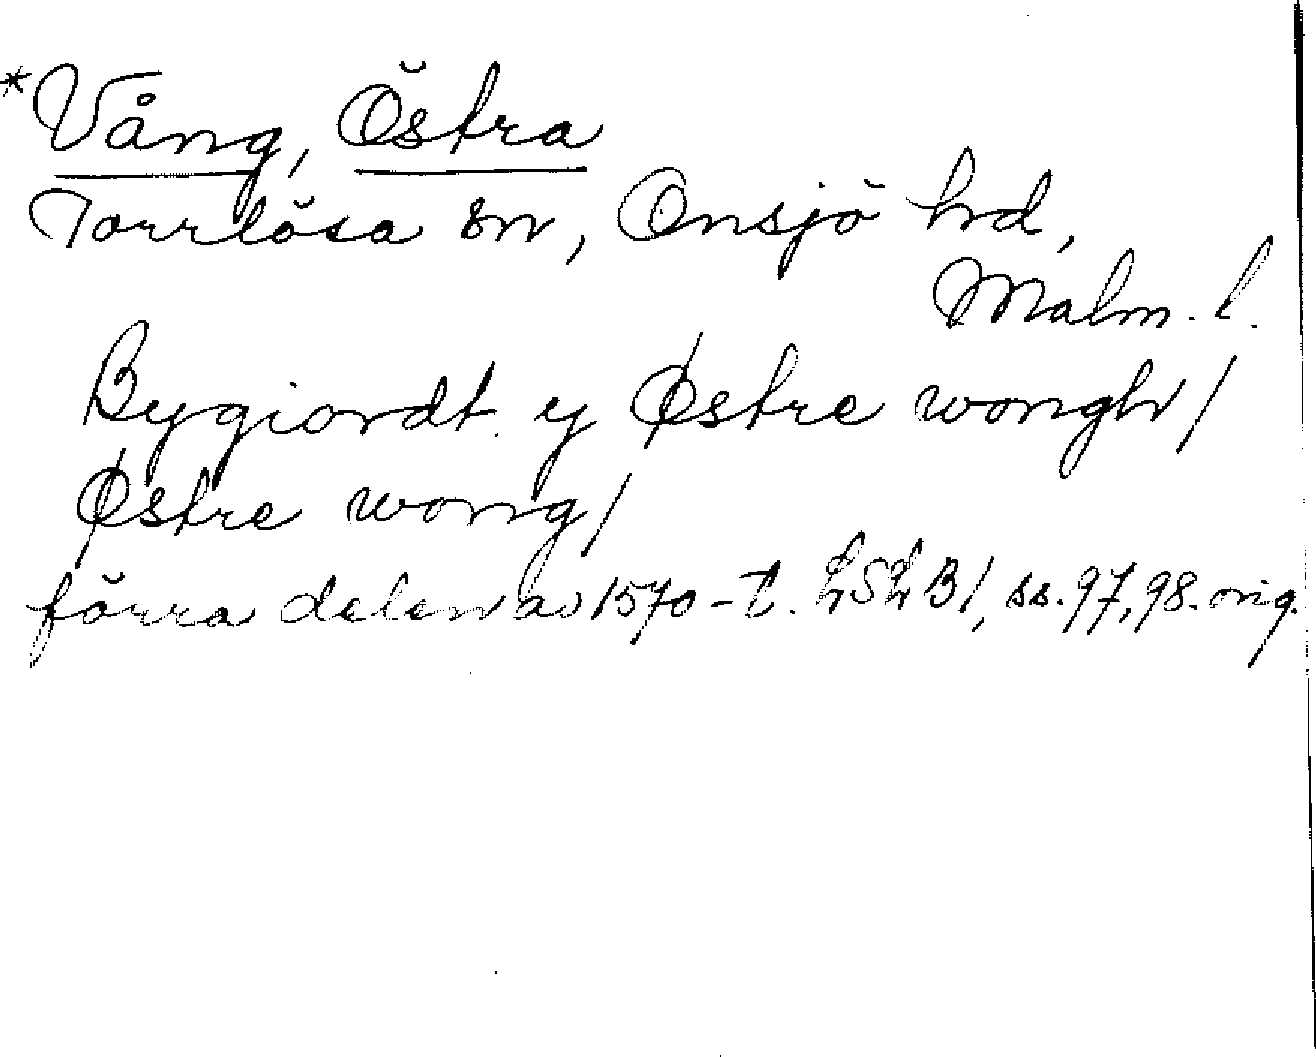 *Vång, Östra
Torrlösa sn, Onsjö hrd,
Malm. l.
Bygiordt y Østre wongh/
Østre wong/
förra delen av 1570-t. LSLB1, ss. 97, 98. orig.